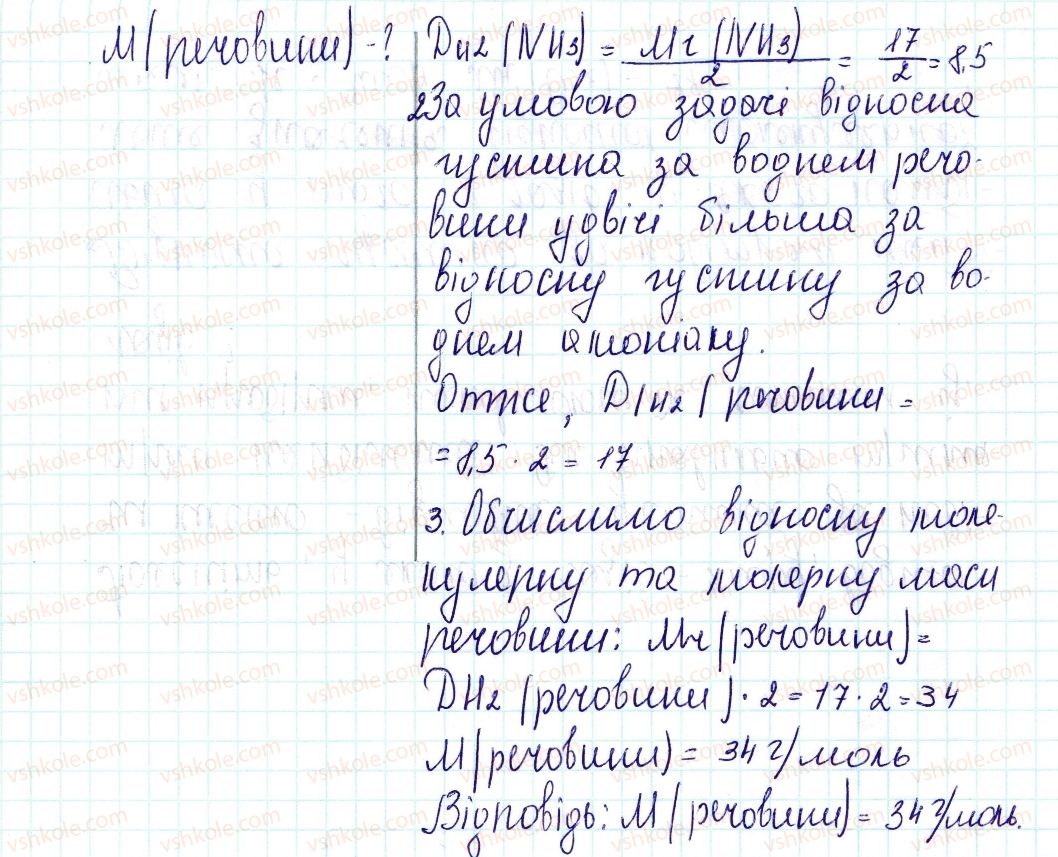 M(речовини) - ?
DH2 (NH3) = Mr (NH3) / 2 = 17 / 2 = 8,5
2 За умовою задачі відносна
густина за воднем речо-
вини удвічі більша за
відносну густину за во-
днем амоніаку.
Отже, D(H2(речовини =
= 8,5 · 2 = 17
3. Обчислимо відносну моле-
кулярну та молярну маси
речовини: Mr(речовини) =
DH2 (речовини) · 2 = 17 · 2 = 34
M(речовини) = 34 г/моль
Відповідь: M(речовини) = 34 г/моль.